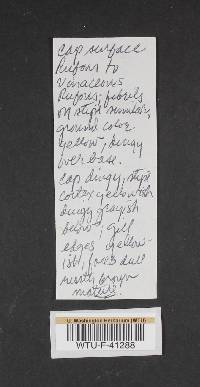 Cap surface
Rufous to
Vinaceous
Rufous; fibrils
on stipe similar,
ground color
yellow, dingy
over base.
Cap dingy, stipe
cortex yellowish
dingy grayish
below; gill
edges yellow-
ish, faces dull
rusty brown
mature.
U. Washington Herbarium (WTU)
WTU-F-41288